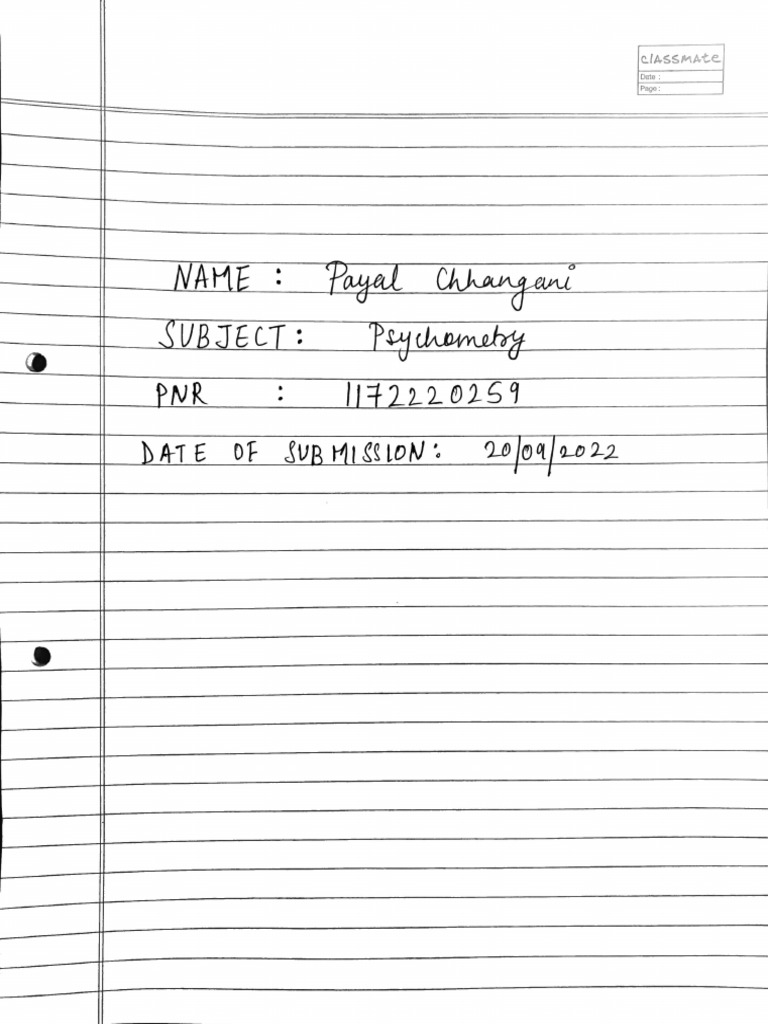 classmate
Date :
Page :
NAME : Payal Chhangani
SUBJECT : Psychometry
PNR : 1172220259
DATE OF SUBMISSION : 20/09/2022